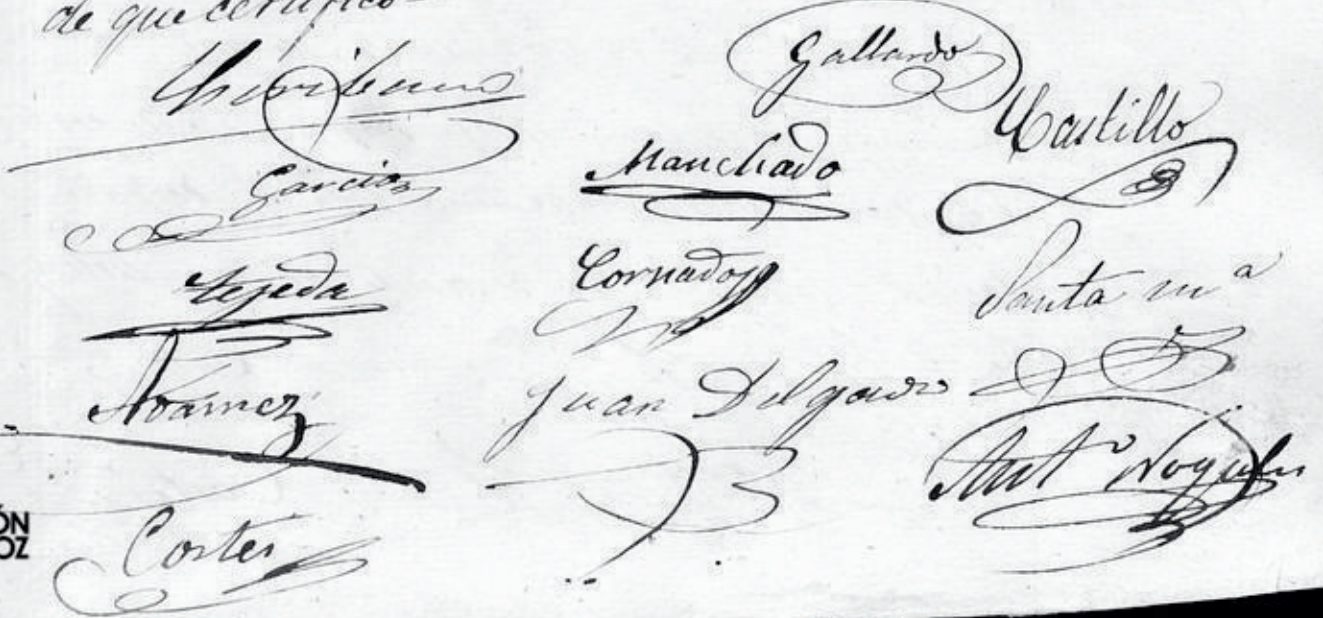 de que certifico
Gallardo
Castillo
Manchado
Garcia
Tejeda
Cornado
Santa mª
Juan Delgado
Antº Nogales
Cortes
ÓN
OZ